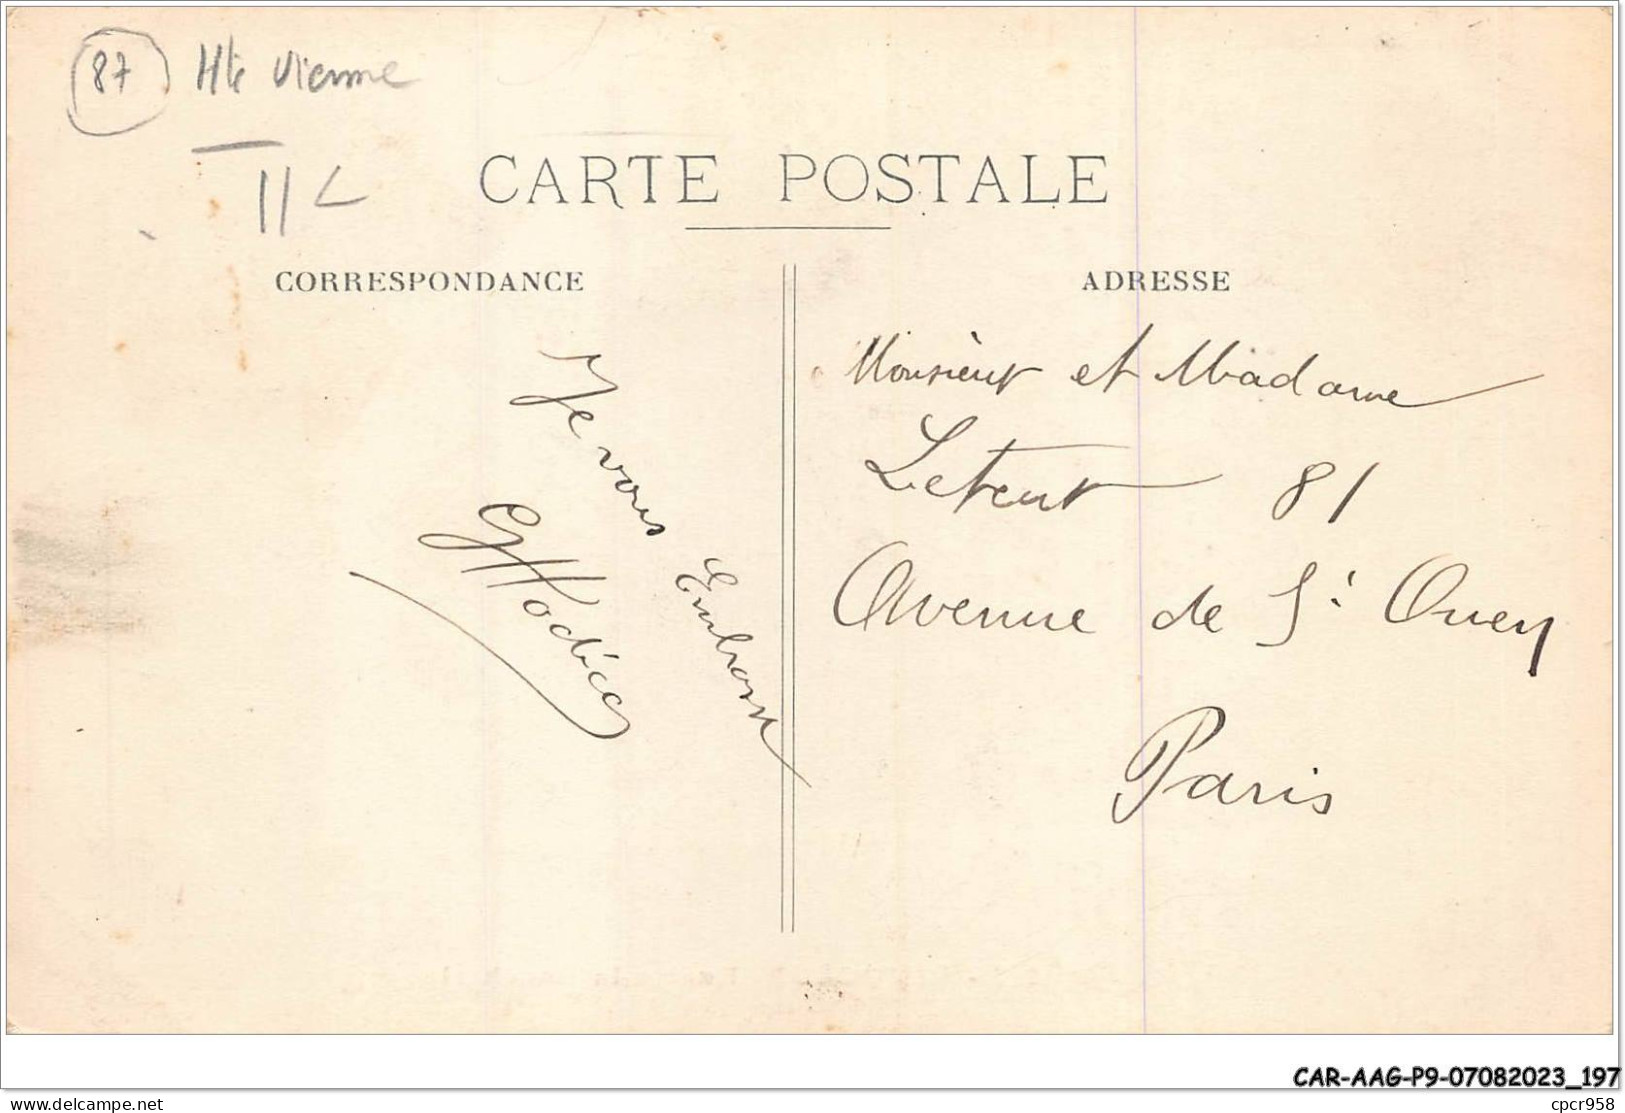 87 Hte Vienne
II
CARTE POSTALE
CORRESPONDANCE
ADRESSE
Je vous
Embrasse
Monsieur et Madame
81
Avenue de St Ouen
Paris
CAR-AAG-P9-07082023_197
delcampe.net
cpcr958